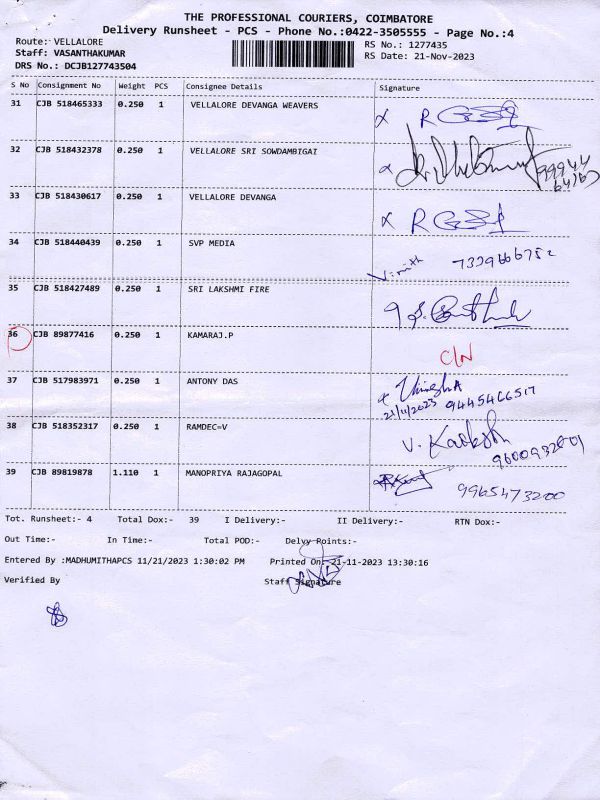 THE PROFESSIONAL COURIERS, COIMBATORE
Delivery Runsheet - PCS - Phone No.:0422-3505555 - Page No.:4
Route: VELLALORE
RS No.: 1277435
Staff: VASANTHAKUMAR
RS Date: 21-Nov-2023
DRS No.: DCJB127743504
S No Consignment No Weight PCS Consignee Details Signature
31 CJB 518465333 0.250 1 VELLALORE DEVANGA WEAVERS
32 CJB 518432378 0.250 1 VELLALORE SRI SOWDAMBIGAI
33 CJB 518430617 0.250 1 VELLALORE DEVANGA
34 CJB 518440439 0.250 1 SVP MEDIA 7339666752
35 CJB 518427489 0.250 1 SRI LAKSHMI FIRE
36 CJB 89877416 0.250 1 KAMARAJ.P C/N
37 CJB 517983971 0.250 1 ANTONY DAS
21/11/2023 9445466517
38 CJB 518352317 0.250 1 RAMDEC=V V. Karthik
39 CJB 89819878 1.110 1 MANOPRIYA RAJAGOPAL 9965473200
Tot. Runsheet:- 4 Total Dox:- 39 I Delivery:- II Delivery:- RTN Dox:-
Out Time:- In Time:- Total POD:- Delvy Points:-
Entered By :MADHUMITHAPCS 11/21/2023 1:30:02 PM Printed On: 21-11-2023 13:30:16
Verified By Staff Signature